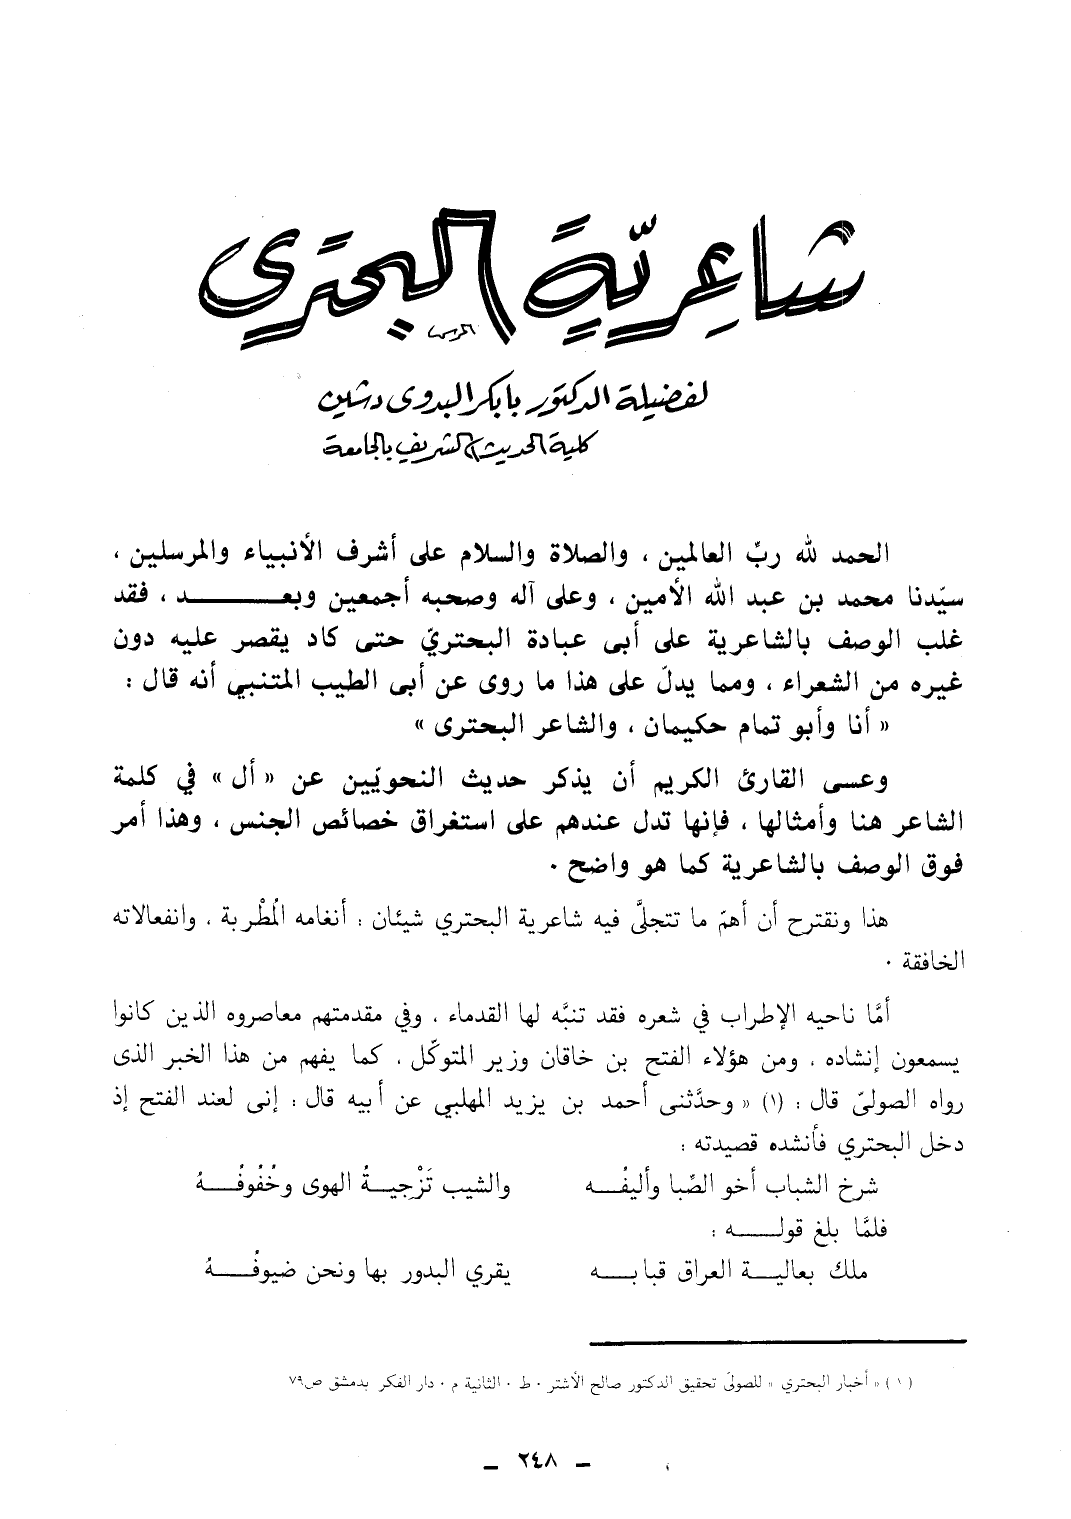 شاعِريّةَ البحتَري
لفضيلة الدكتور بابكر البدوى دشين
كلية الحديث الشريف بالجامعة
الحمد لله ربّ العالمين ، والصلاة والسلام على أشرف الأنبياء والمرسلين ،
سيّدنا محمد بن عبد الله الأمين ، وعلى آله وصحبه أجمعين وبعـــــــــد ، فقد
غلب الوصف بالشاعرية على أبى عبادة البحتريّ حتى كاد يقصر عليه دون
غيره من الشعراء ، ومما يدلّ على هذا ما روى عن أبى الطيب المتنبي أنه قال :
« أنا وأبو تمام حكيمان ، والشاعر البحترى »
وعسى القارئ الكريم أن يذكر حديث النحويّين عن « أل » في كلمة
الشاعر هنا وأمثالها ، فإنها تدل عندهم على استغراق خصائص الجنس ، وهذا أمر
فوق الوصف بالشاعرية كما هو واضح .
هذا ونقترح أن أهمّ ما تتجلَّى فيه شاعرية البحتري شيئان : أنغامه المُطْربة ، وانفعالاته
الخافقة .
أمَّا ناحيه الإطراب في شعره فقد تنبَّه لها القدماء ، وفي مقدمتهم معاصروه الذين كانوا
يسمعون إنشاده ، ومن هؤلاء الفتح بن خاقان وزير المتوكّل ، كما يفهم من هذا الخبر الذى
رواه الصولىّ قال : (١) « وحدَّثنى أحمد بن يزيد المهلبي عن أبيه قال : إنى لعند الفتح إذ
دخل البحتري فأنشده قصيدته :
شرخ الشباب أخو الصِّبا وأليفُـــه والشيب تَزْجيـــةُ الهوى وخُفُوفُـــهُ
فلمَّا بلغ قولـــــه :
ملك بعاليـــة العراق قبابـــه يقري البدور بها ونحن ضيوفُـــهُ
(١) « أخبار البحتري » للصولىّ تحقيق الدكتور صالح الأشتر . ط . الثانية م . دار الفكر بدمشق ص٧٩
– ٢٤٨ –